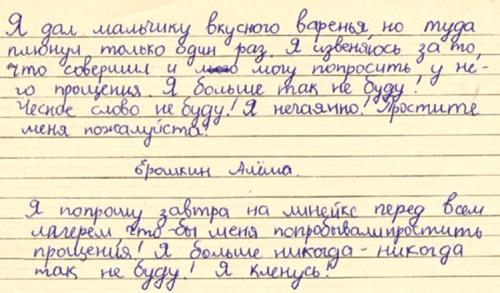 Я дал мальчику вкусного варенья, но туда
плюнул только один раз. Я извеняюсь за то,
что совершил и могу попросить, у не-
го прощения. Я больше так не буду!
Чесное слово не буду! Я нечаянно! Простите
меня пожалуйста!
Ерошкин Алёша.
Я попрошу завтра на линейке перед всем
лагерем что-бы меня попробывали простить
прощения! Я больше никогда-никогда
так не буду! Я кленусь!